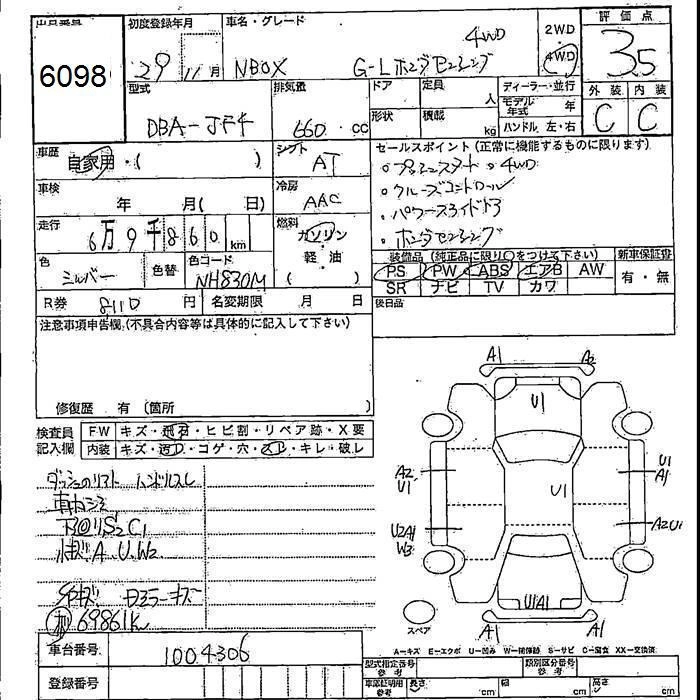 6098
初度登録年月 車名・グレード 2WD 評価点
29 11月 NBOX G-Lホンダセンシング 4WD 4WD 3.5
型式 排気量 ドア 定員 人 ディーラー・並行 外装 内装
DBA-JF4 660 cc 形状 積載 kg モデル年式 年 C C
ハンドル 左・右
車歴 自家用・( ) シフト AT セールスポイント(正常に機能するものに限ります)
・プッシュスタート ・4WD
車検 年 月( 日) 冷房 AAC ・クルーズコントロール
走行 6万9千860km 燃料 ガソリン・軽油・( ) ・パワースライドドア
・ホンダセンシング
色 シルバー 色替 色コード NH830M 装備品(純正品に限り〇をつけて下さい) 新車保証書
PS PW ABS エアB AW 有・無
SR ナビ TV カワ
R券 8110円 名変期限 月 日 後日品
注意事項申告欄(不具合内容等は具体的に記入して下さい)
修復歴 有(箇所 )
検査員記入欄 FW キズ・飛石・ヒビ割・リペア跡・X要
内装 キズ・汚れ・コゲ・穴・スレ・キレ・破レ
ハンドルスレ
車内シミ
S2 C1
A.U.W2
キズ
69861K
車台番号 1004306
登録番号
A1 A2
U1
A2 U1
U1 A1
U1
U2A1 W3
A2U1
U1A1
スペア A1 A1
A-キズ E-エクボ U-凹み W-補修跡 S-サビ C-腐食 XX-交換済
型式指定番号 参考 類別区分番号 参考
車庫証明用 参考 長さ cm 幅 cm 高さ cm